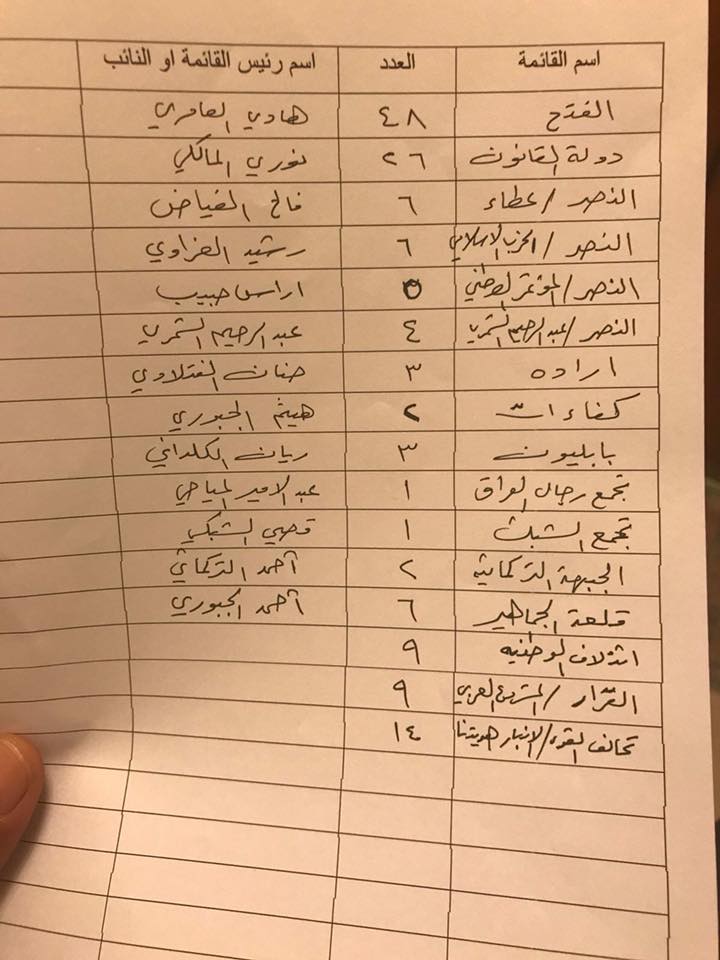 اسم القائمة العدد اسم رئيس القائمة او النائب
الفتح ٤٨ هادي العامري
دولة القانون ٢٦ نوري المالكي
النصر / عطاء ٦ فالح الفياض
النصر / الحزب الاسلامي ٦ رشيد العزاوي
النصر / المؤتمر الوطني ٥ اراس حبيب
النصر / عبد الرحيم الشمري ٤ عبد الرحيم الشمري
اراده ٣ حنان الفتلاوي
كفاءات ٢ هيثم الجبوري
بابليون ٣ ريان الكلداني
تجمع رجال العراق ١ عبد الامير المياحي
تجمع الشبك ١ قصي الشبكي
الجبهة التركمانيه ٢ احمد التركماني
قلعة الجماهير ٦ احمد الجبوري
ائتلاف الوطنيه ٩
القرار / المشروع العربي ٩
تحالف القوى / الانبار هويتنا ١٤